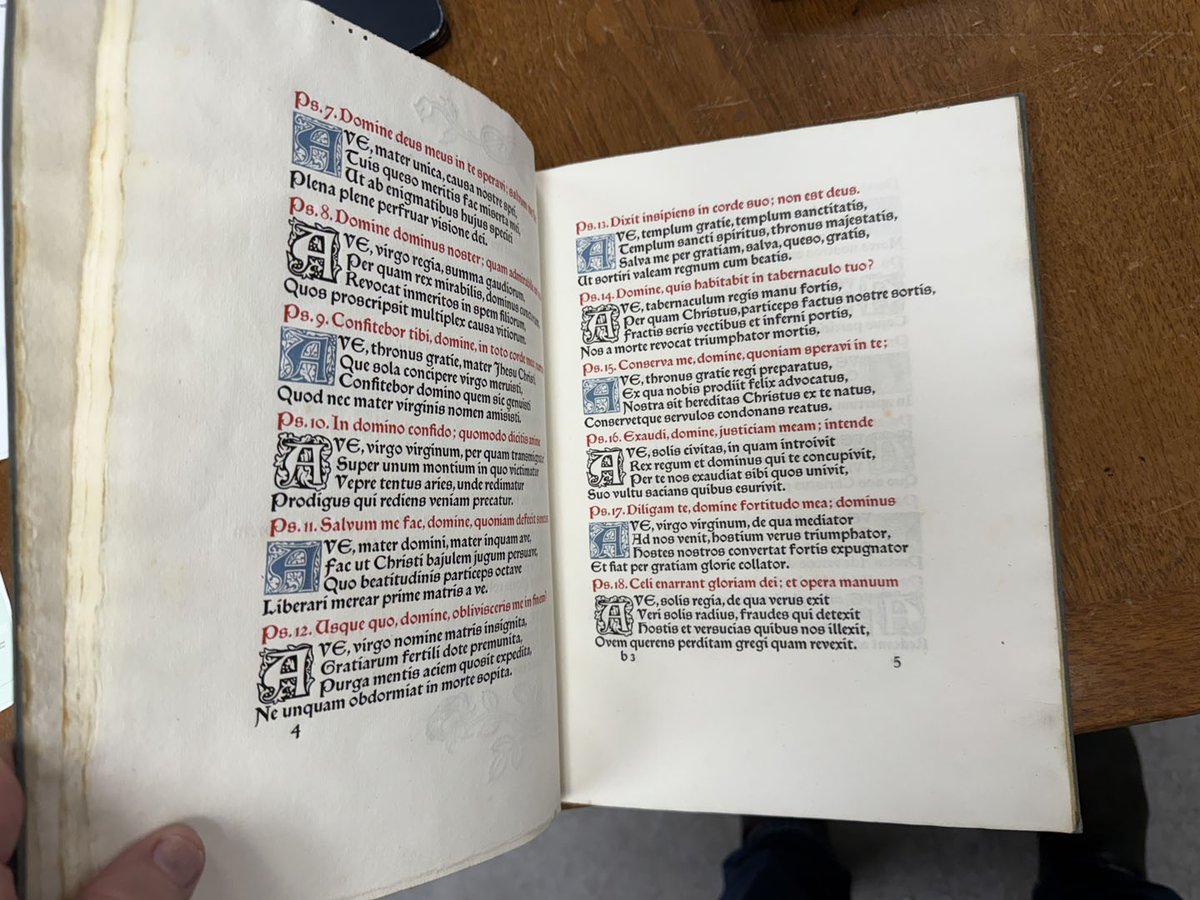 Ps. 7. Domine deus meus in te speravi; salvum me
AVE, mater unica, causa nostre spei,
Tuis queso meritis fac miserta mei,
Ut ab enigmatibus hujus speciei
Plena plene perfruar visione dei.
Ps. 8. Domine dominus noster; quam admirabile
AVE, virgo regia, summa gaudiorum,
Per quam rex mirabilis, dominus
Revocat inmeritos in spem filiorum,
Quos proscripsit multiplex causa vitiorum.
Ps. 9. Confitebor tibi, domine, in toto corde
AVE, thronus gratie, mater Jhesu Christi,
Que sola concipere virgo meruisti,
Confitebor domino quem sic genuisti
Quod nec mater virginis nomen amisisti.
Ps. 10. In domino confido; quomodo dicitis anime
AVE, virgo virginum, per quam
Super unum montium in quo victimatur
Vepre tentus aries, unde redimatur
Prodigus qui rediens veniam precatur.
Ps. 11. Salvum me fac, domine, quoniam defecit sanctus
AVE, mater domini, mater inquam ave,
Fac ut Christi bajulem jugum persuave,
Quo beatitudinis particeps octave
Liberari merear prime matris a ve.
Ps. 12. Usque quo, domine, oblivisceris me in finem?
AVE, virgo nomine matris insignita,
Gratiarum fertili dote premunita,
Purga mentis aciem quosit expedita,
Ne unquam obdormiat in morte sopita.
4
Ps. 13. Dixit insipiens in corde suo; non est deus.
AVE, templum gratie, templum sanctitatis,
Templum sancti spiritus, thronus majestatis,
Salva me per gratiam, salva, queso, gratis,
Ut sortiri valeam regnum cum beatis.
Ps. 14. Domine, quis habitabit in tabernaculo tuo?
AVE, tabernaculum regis manu fortis,
Per quam Christus, particeps factus nostre sortis,
Fractis seris vectibus et inferni portis,
Nos a morte revocat triumphator mortis.
Ps. 15. Conserva me, domine, quoniam speravi in te;
AVE, thronus gratie regi preparatus,
Ex qua nobis prodiit felix advocatus,
Nostra sit hereditas Christus ex te natus,
Conservetque servulos condonans reatus.
Ps. 16. Exaudi, domine, justiciam meam; intende
AVE, solis civitas, in quam introivit
Rex regum et dominus qui te concupivit,
Per te nos exaudiat sibi quos univit,
Suo vultu sacians quibus esurivit.
Ps. 17. Diligam te, domine fortitudo mea; dominus
AVE, virgo virginum, de qua mediator
Ad nos venit, hostium verus triumphator,
Hostes nostros convertat fortis expugnator
Et fiat per gratiam glorie collator.
Ps. 18. Celi enarrant gloriam dei; et opera manuum
AVE, solis regia, de qua verus exit
Veri solis radius, fraudes qui detexit
Hostis et versucias quibus nos illexit,
Ovem querens perditam gregi quam revexit.
b 3
5